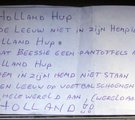 HOLLAND HUP
DE LEEUW NIET IN ZIJN HEMPIE
HOLLAND HUP
BEESSIE GEEN PANTOFFELS A
HOLLAND HUP
HEM IN ZIJN HEMD NIET STAAN
EEN LEEUW OP VOETBALSCHOENEN
HELE WERELD AAN
HOLLAND